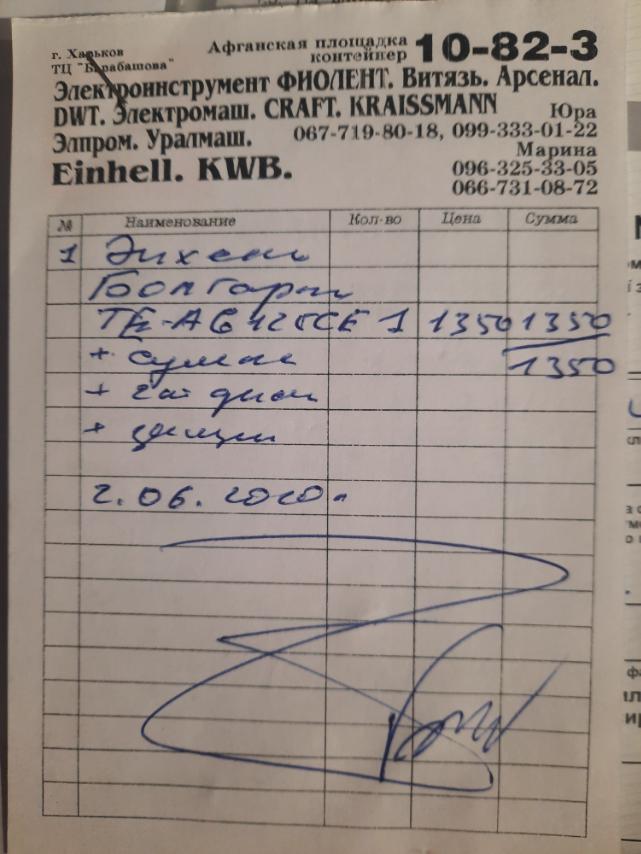 г. Харьков
ТЦ "Барабашова"
Афганская площадка
контейнер 10-82-3
Электроинструмент ФИОЛЕНТ. Витязь. Арсенал.
DWT. Электромаш. CRAFT. KRAISSMANN
Элпром. Уралмаш.
Юра
067-719-80-18, 099-333-01-22
Einhell. KWB.
Марина
096-325-33-05
066-731-08-72
№ Наименование Кол-во Цена Сумма
1 Эйхелл
Болгарка
TE-AG 125CE 1 1350 1350
+ сумка 1350
+ диск
+
2.06.2020.